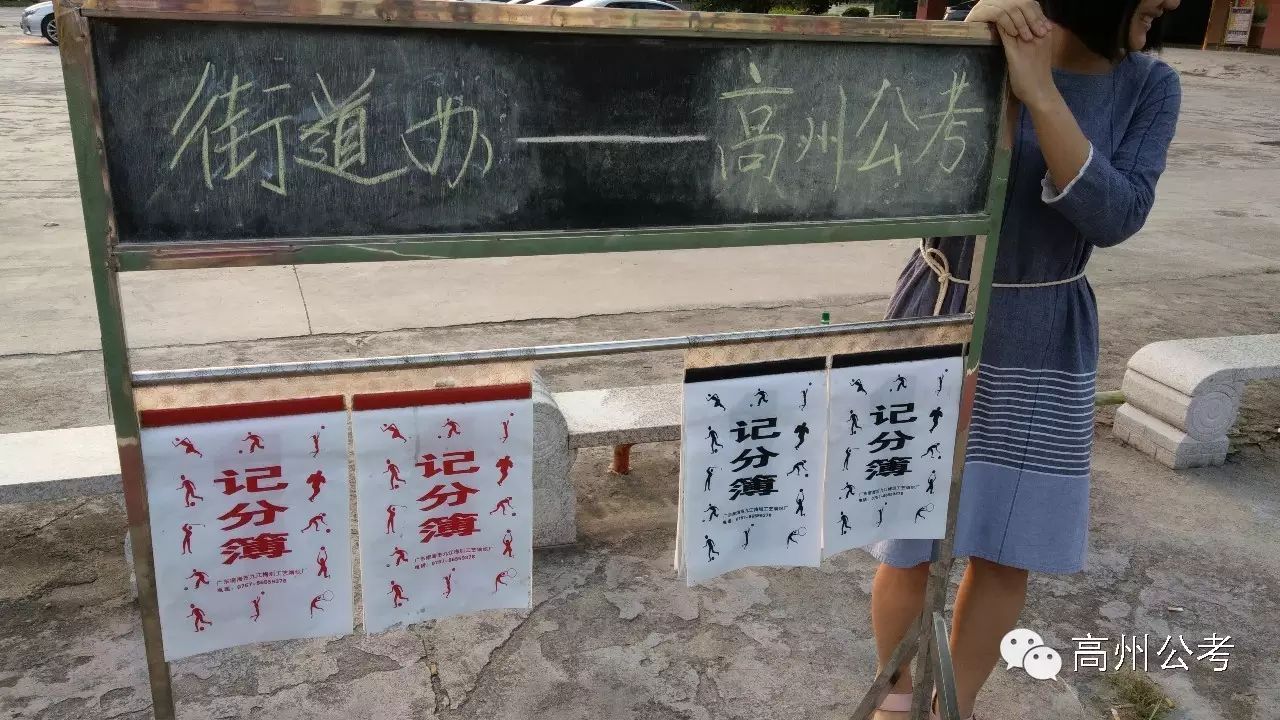 街道办——高州公考
记分簿
记分簿
记分簿
记分簿
高州公考